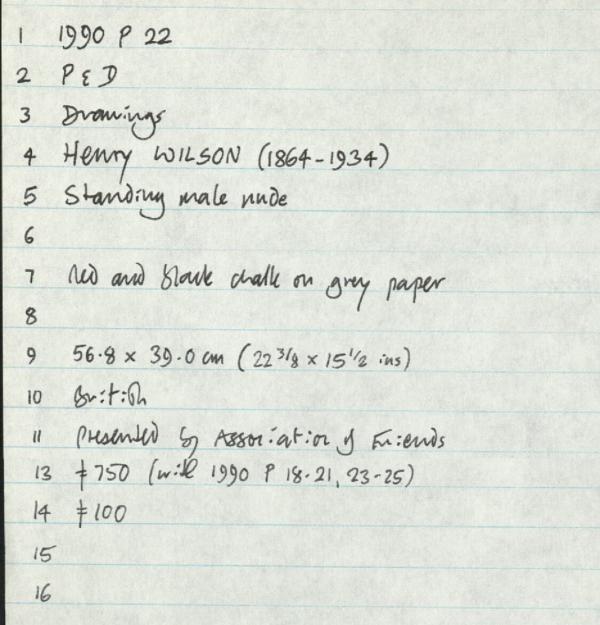 1 1990 P 22
2 P & D
3 Drawings
4 Henry WILSON (1864-1934)
5 Standing male nude
6
7 Red and black chalk on grey paper
8
9 56.8 x 39.0 cm (22 3/8 x 15 1/2 ins)
10 British
11 Presented by Association of Friends
13 £750 (with 1990 P 18-21, 23-25)
14 £100
15
16